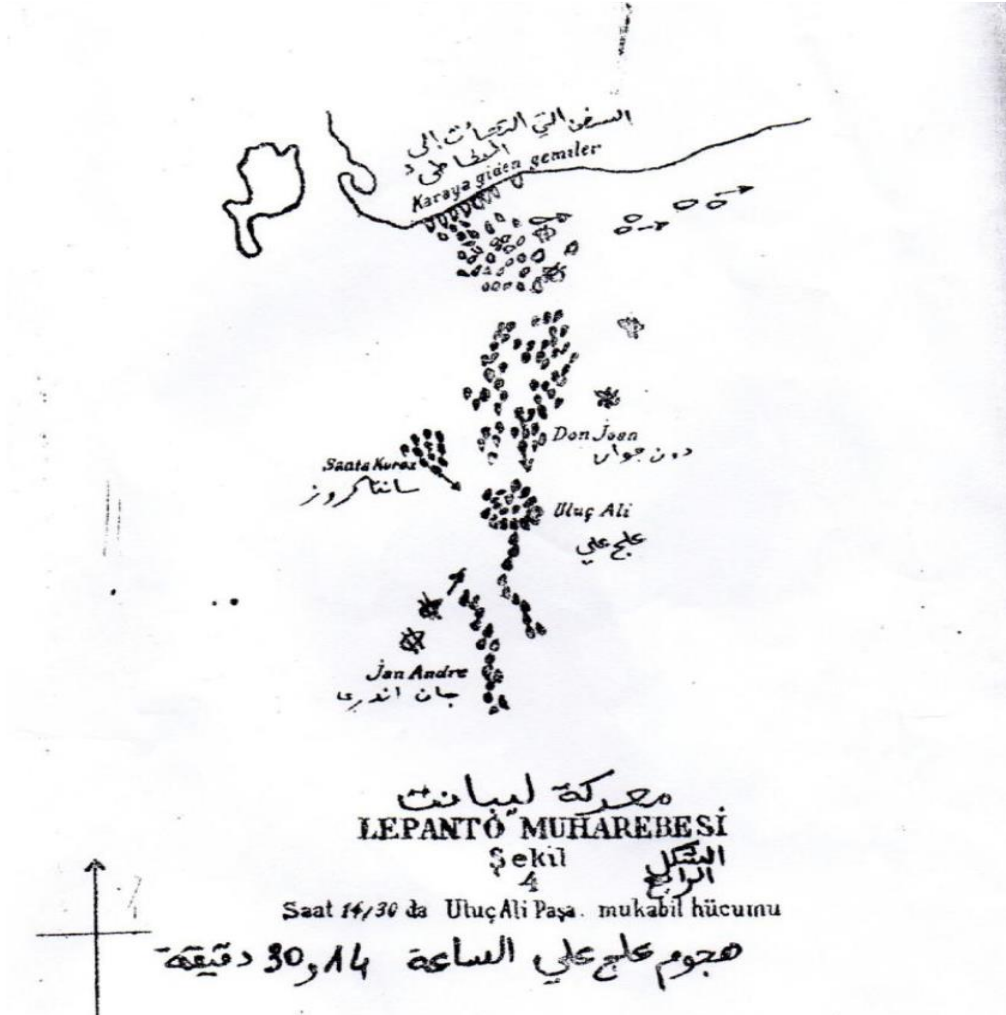 السفن التي التجأت إلى
الشاطئ
Karaya giden gemiler
Don Joan
دون جوان
Santa Kuroz
سانتاكروز
Uluç Ali
علج علي
Jan Andre
جان اندري
معركة ليبانت
LEPANTO MUHAREBESİ
Şekil
4
الشكل
الرابع
Saat 14/30 da Uluç Ali Paşa. mukabil hücumu
هجوم علج علي الساعة 14 و 30 دقيقة